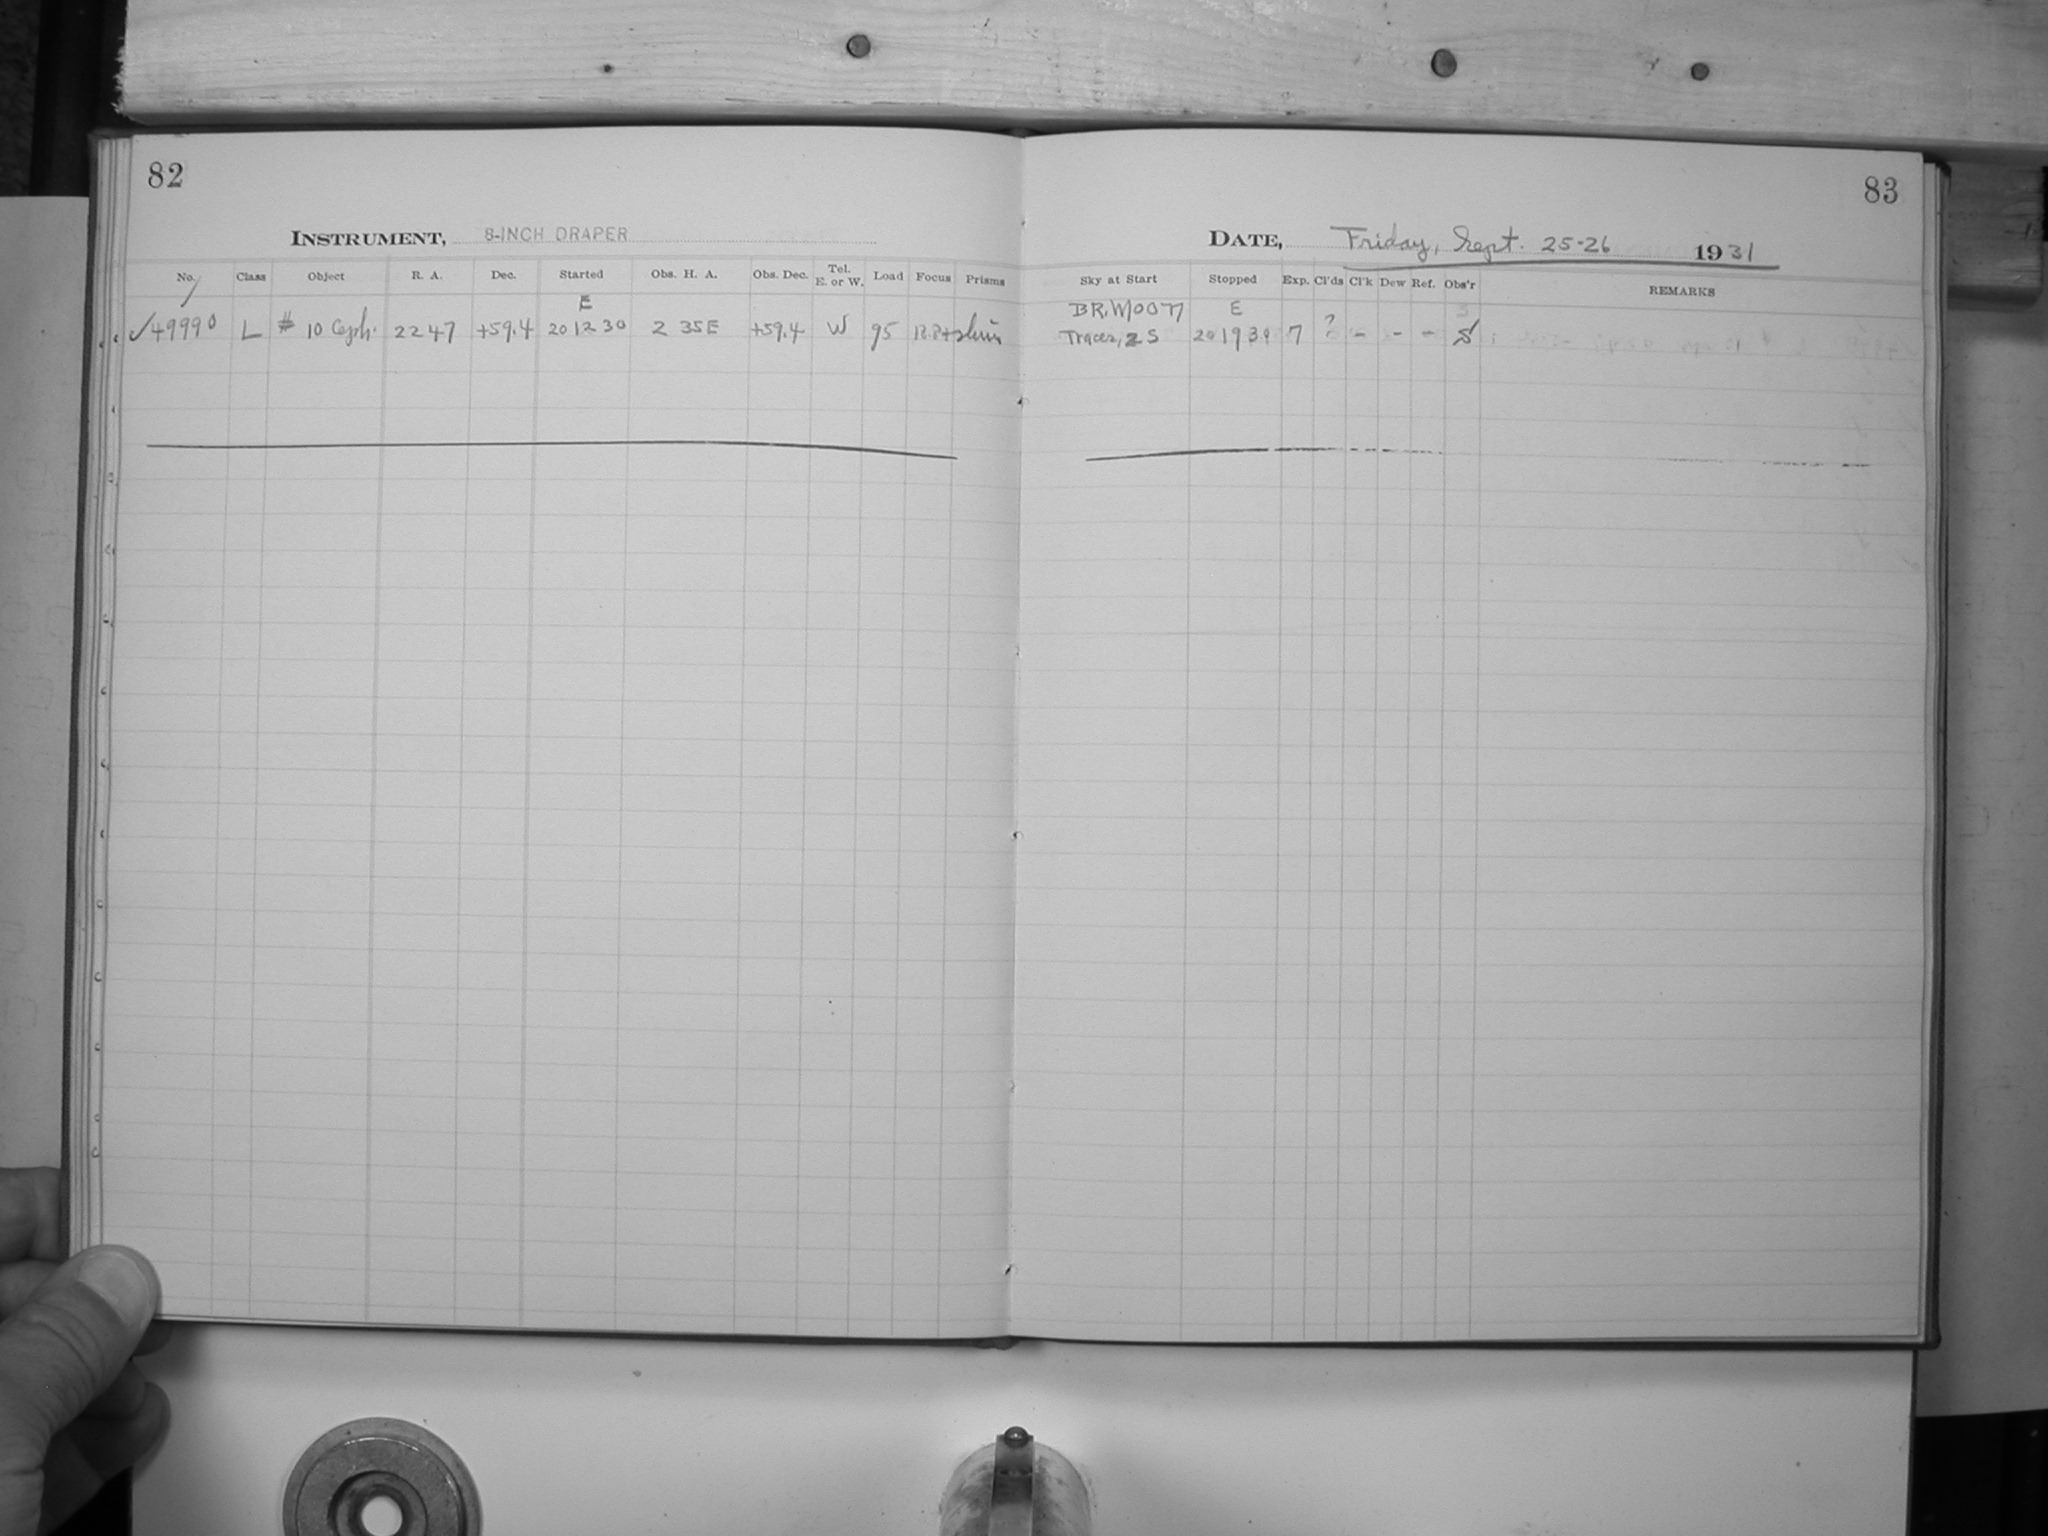 82
INSTRUMENT, 8-INCH DRAPER
No. Class Object R. A. Dec. Started Obs. H. A. Obs. Dec. Tel. E. or W. Load Focus Prisms
E
✓49990 L # 10 Ceph. 22 47 +59.4 20 12 30 2 35E +59.4 W 95
83
DATE, Friday, Sept. 25-26 1931
Sky at Start Stopped Exp. Cl'ds Cl'k Dew Ref. Obs'r REMARKS
BR. MOON E
Traces, 2 S 20 19 30 7 ? - - - S